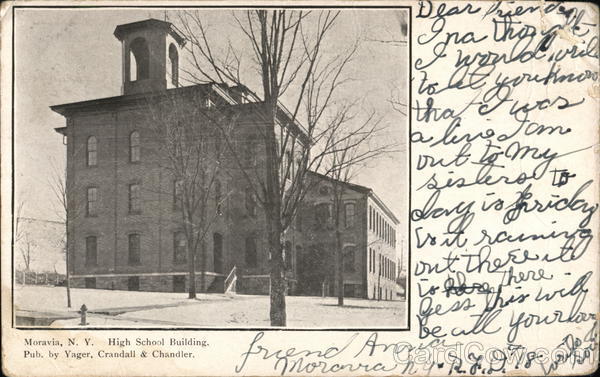 Dear friend
Ina thought
I would write
to let you know
that I was
alive I am
out to my
sisters to
day is friday
is it raining
out there it
is here there
gess this will
be all your over
friend Anna
Moravia N.Y. R.F.D. 18
Moravia, N. Y. High School Building.
Pub. by Yager, Crandall & Chandler.
CardCow.com